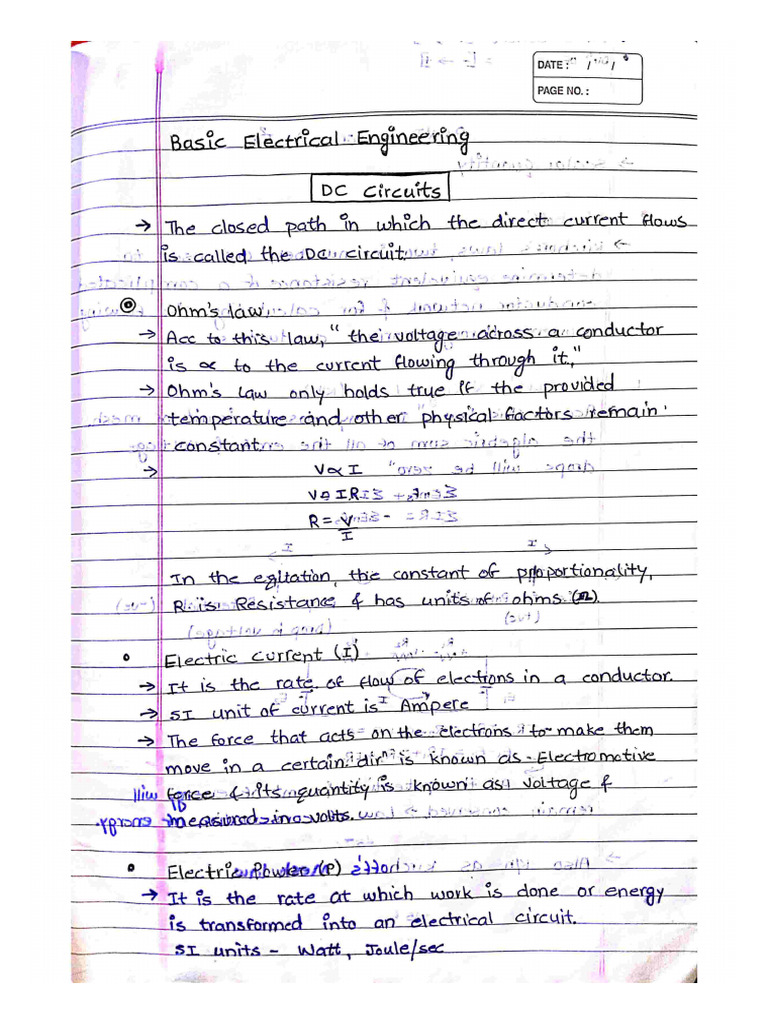 DATE:
PAGE NO.:
Basic Electrical Engineering
DC Circuits
→ The closed path in which the direct current flows
is called the DC circuit.
Ohm's law
→ Acc to this law, "the voltage across a conductor
is ∝ to the current flowing through it,"
→ Ohm's law only holds true if the provided
temperature and other physical factors remain
constant
→ V∝I
V=IR
R=V/I
In the eqltation, the constant of proportionality,
R is Resistance & has units of ohms (Ω).
• Electric current (I)
→ It is the rate of flow of elections in a conductor.
→ SI unit of current is Ampere
→ The force that acts on the electrons to make them
move in a certain dirⁿ is known as Electromotive
force & its quantity is known as voltage &
measured in volts.
• Electric Power (P)
→ It is the rate at which work is done or energy
is transformed into an electrical circuit.
SI units - Watt, Joule/sec